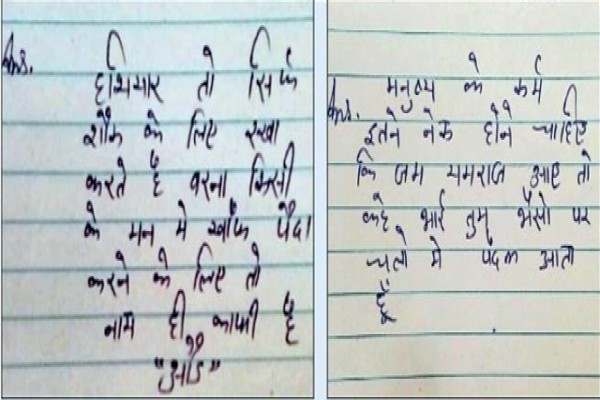 Ans.
हथियार तो सिर्फ
शौक के लिए रखा
करते है वरना किसी
के मन मे खौफ पैदा
करने के लिए तो
नाम ही काफी है
Ans.
मनुष्य के कर्म
इतने नेक होने चाहिए
कि जब यमराज आए तो
कहे भाई तुम भैंसो पर
चलो मे पैदल आता
हूँ